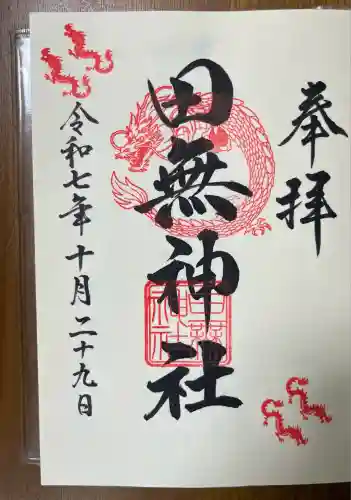 奉拝
田無神社
田無神社
令和七年十月二十九日